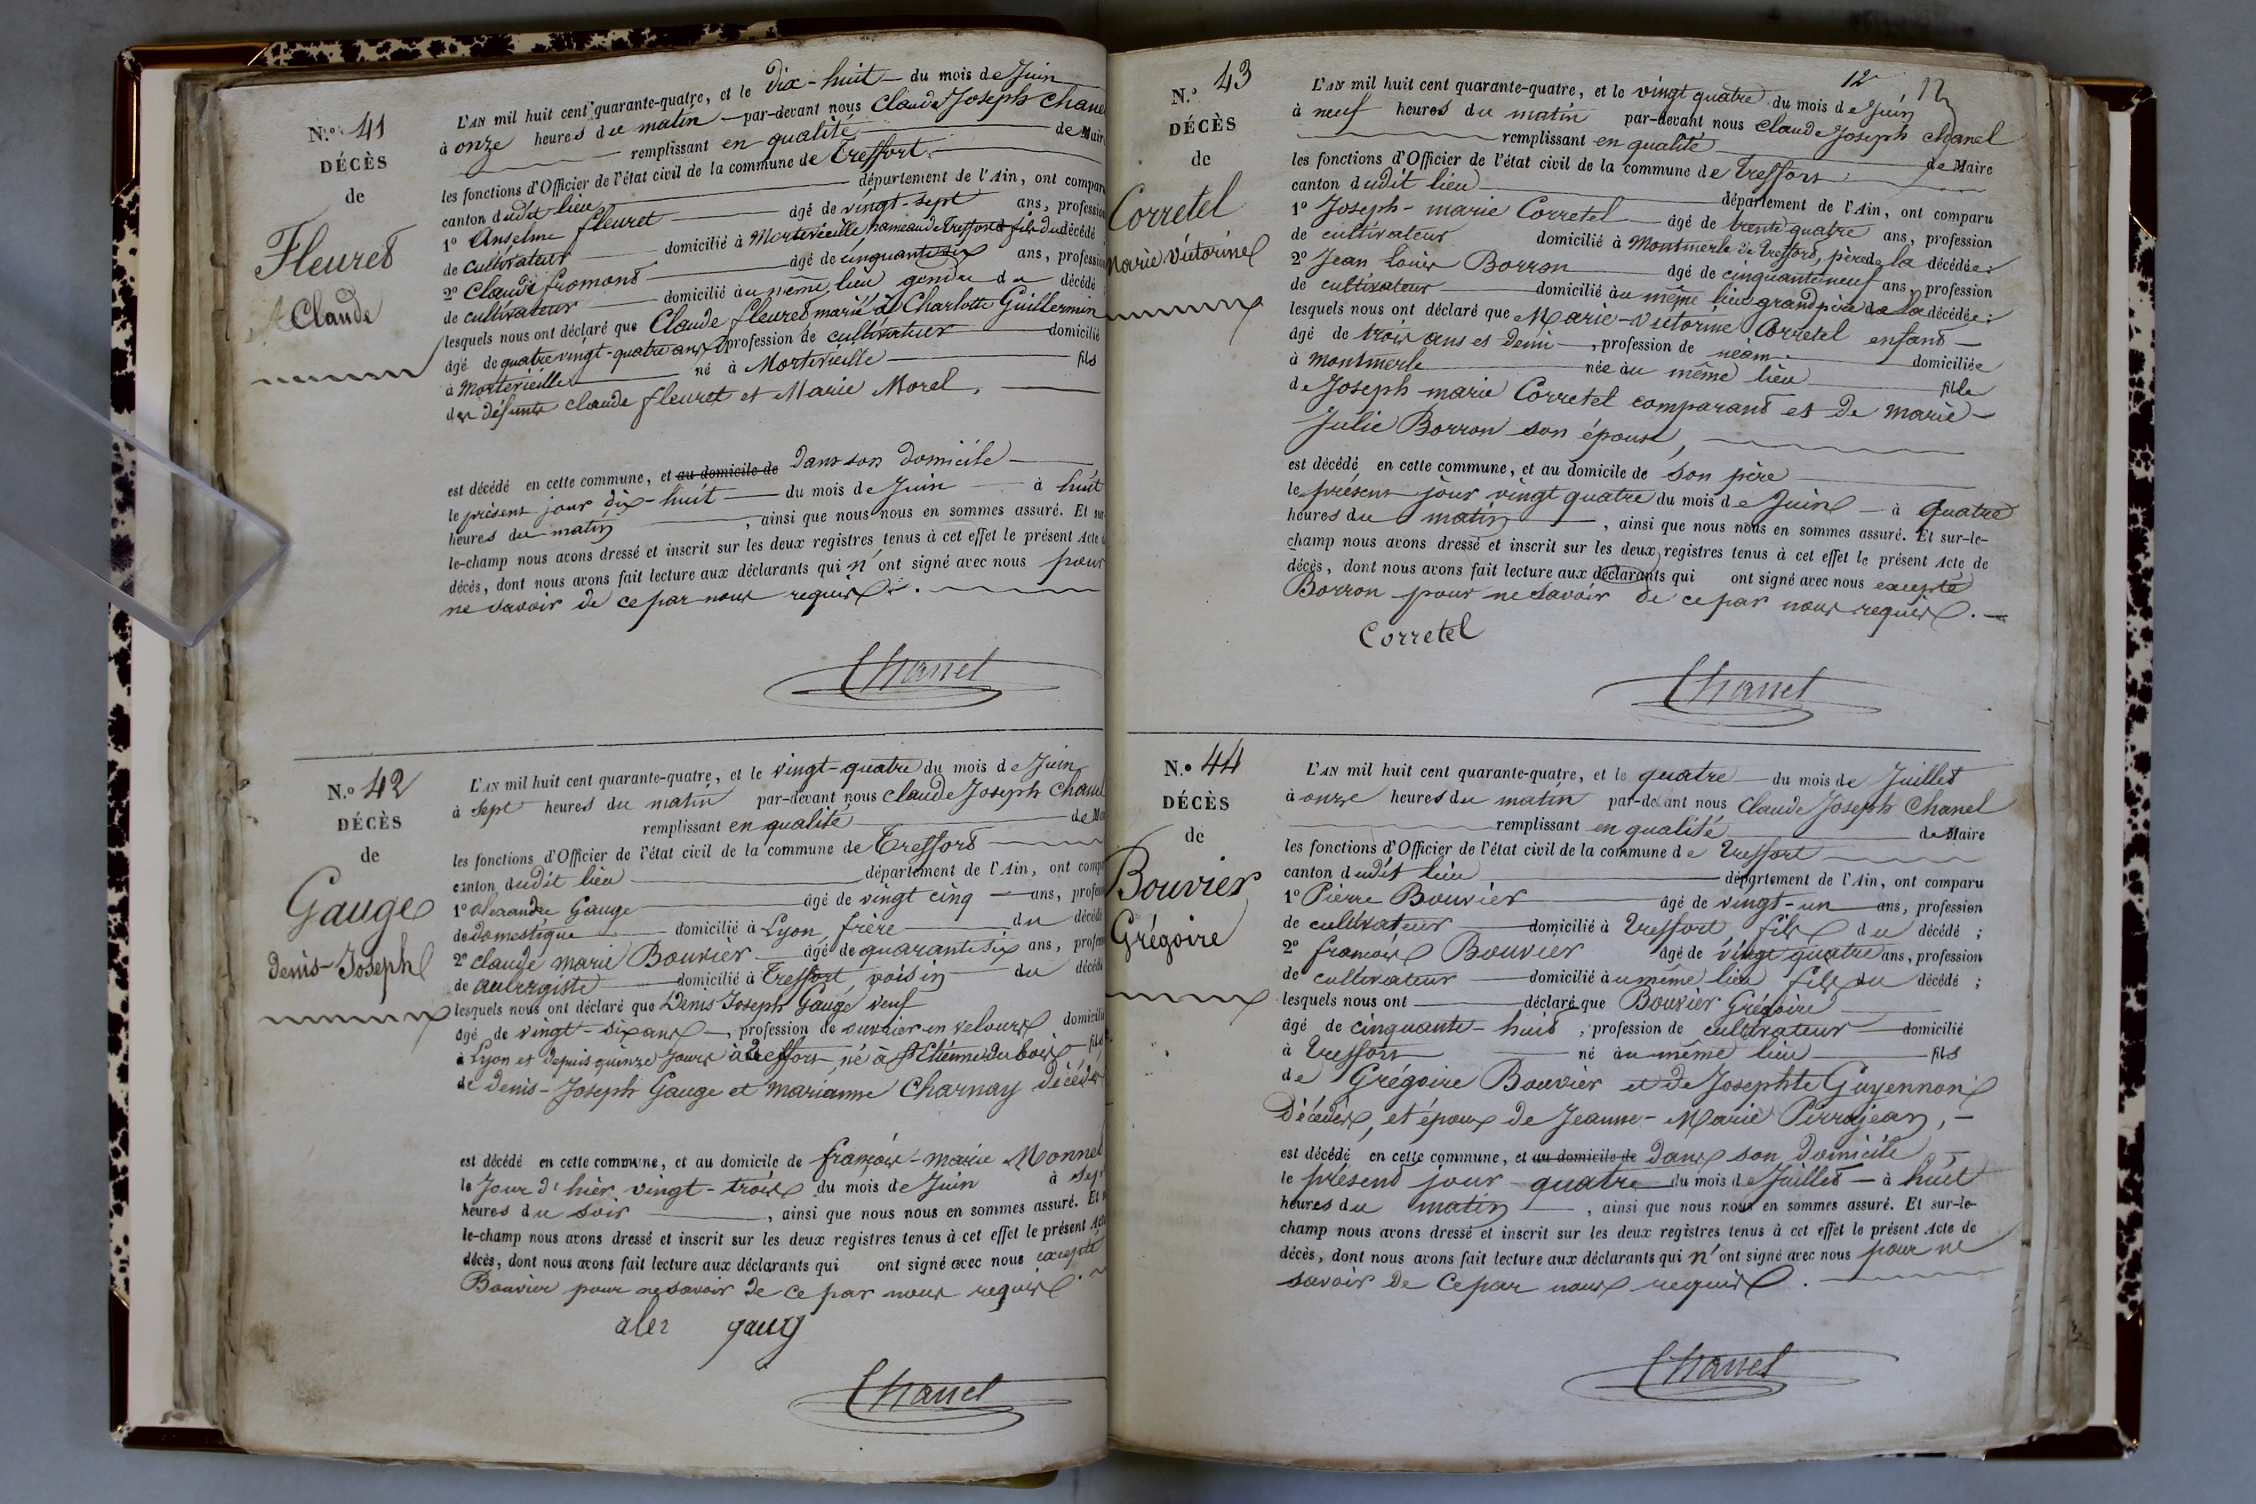 N.o 41
DÉCÈS
de
Fleuret
Claude
L'AN mil huit cent quarante-quatre, et le Dix-huit du mois de Juin
à onze heures du matin par-devant nous Claude Joseph Chanel
remplissant en qualité de Maire
les fonctions d'Officier de l'état civil de la commune de Treffort
canton dudit lieu département de l'Ain, ont comparu
1o Anselme fleuret âgé de vingt-sept ans, profession
de cultivateur domicilié à Mortevieille hameau de Treffort fils du décédé
2o Claude fromont âgé de cinquante six ans, profession
de cultivateur domicilié au même lieu gendre du décédé
lesquels nous ont déclaré que Claude fleuret marié à Charlotte Guillermin
âgé de quatre vingt-quatre ans profession de cultivateur domicilié
à Mortevieille né à Mortevieille fils
des défunts claude fleuret et Marie Morel,
est décédé en cette commune, et au domicile de dans son domicile
le présent jour dix-huit du mois de Juin à huit
heures du matin, ainsi que nous nous en sommes assuré. Et sur-
le-champ nous avons dressé et inscrit sur les deux registres tenus à cet effet le présent Acte de
décès, dont nous avons fait lecture aux déclarants qui n'ont signé avec nous pour
ne savoir de ce par nous requis.
Chanel
N.o 42
DÉCÈS
de
Gauge
Denis-Joseph
L'AN mil huit cent quarante-quatre, et le vingt-quatre du mois de Juin
à sept heures du matin par-devant nous claude Joseph Chanel
remplissant en qualité de Maire
les fonctions d'Officier de l'état civil de la commune de Treffort
canton dudit lieu département de l'Ain, ont comparu
1o alexandre Gauge âgé de vingt cinq ans, profession
de domestique domicilié à Lyon, frère du décédé
2o claude marie Bouvier âgé de quarante six ans, profession
de aubergiste domicilié à Treffort, voisin du décédé
lesquels nous ont déclaré que Denis Joseph Gauge veuf
âgé de vingt-six ans, profession de ouvrier en velours domicilié
à Lyon et depuis quinze jours à Treffort né à St Etienne du bois fils
de Denis-Joseph Gauge et marianne Charnay décédés
est décédé en cette commune, et au domicile de françois-marie Monnet
le Jour d'hier vingt-trois du mois de Juin à sept
heures du soir, ainsi que nous nous en sommes assuré. Et sur-
le-champ nous avons dressé et inscrit sur les deux registres tenus à cet effet le présent Acte
décès, dont nous avons fait lecture aux déclarants qui ont signé avec nous excepté
Bouvier pour ne savoir de ce par nous requis.
alex gaug
Chanel
12
N.o 43
DÉCÈS
de
Corretel
Marie Victorine
L'AN mil huit cent quarante-quatre, et le vingt quatre du mois de Juin
à neuf heures du matin par-devant nous Claude Joseph Chanel
remplissant en qualité de Maire
les fonctions d'Officier de l'état civil de la commune de Treffort
canton dudit lieu département de l'Ain, ont comparu
1o Joseph-marie Corretel âgé de trente quatre ans, profession
de cultivateur domicilié à Montmerle de Treffort, père de la décédée;
2o Jean Louis Borron âgé de cinquante neuf ans, profession
de cultivateur domicilié au même lieu grand père de la décédée;
lesquels nous ont déclaré que Marie-victorine Corretel enfant
âgé de trois ans et demi, profession de néant domiciliée
à montmerle née au même lieu fille
de Joseph-marie Corretel comparant et de marie-
Julie Borron son épouse,
est décédé en cette commune, et au domicile de son père
le présent jour vingt quatre du mois de Juin à quatre
heures du matin, ainsi que nous nous en sommes assuré. Et sur-le-
champ nous avons dressé et inscrit sur les deux registres tenus à cet effet le présent Acte de
décès, dont nous avons fait lecture aux déclarants qui ont signé avec nous excepté
Borron pour ne savoir de ce par nous requis.
Corretel
Chanel
N.o 44
DÉCÈS
de
Bouvier
Grégoire
L'AN mil huit cent quarante-quatre, et le quatre du mois de Juillet
à onze heures du matin par-devant nous Claude Joseph Chanel
remplissant en qualité de Maire
les fonctions d'Officier de l'état civil de la commune de Treffort
canton dudit lieu département de l'Ain, ont comparu
1o Pierre Bouvier âgé de vingt-un ans, profession
de cultivateur domicilié à Treffort fils du décédé;
2o françois Bouvier âgé de vingt quatre ans, profession
de cultivateur domicilié au même lieu fils du décédé;
lesquels nous ont déclaré que Bouvier Grégoire
âgé de cinquante-huit, profession de cultivateur domicilié
à Treffort né au même lieu fils
de Grégoire Bouvier et de Josephte Guyennon
Décédés, et époux de Jeanne-Marie Perrajean,
est décédé en cette commune, et au domicile de dans son domicile
le présent jour quatre du mois de Juillet à huit
heures du matin, ainsi que nous nous en sommes assuré. Et sur-le-
champ nous avons dressé et inscrit sur les deux registres tenus à cet effet le présent Acte de
décès, dont nous avons fait lecture aux déclarants qui n'ont signé avec nous pour ne
savoir de ce par nous requis.
Chanel